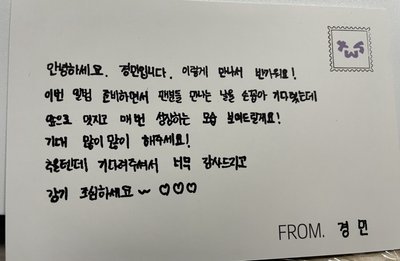 안녕하세요. 경민입니다. 이렇게 만나서 반가워요!
이번 앨범 준비하면서 팬분들 만나는 날을 손꼽아 기다렸는데
앞으로 멋지고 매번 성장하는 모습 보여드릴게요!
기대 많이많이 해주세요!
추울텐데 기다려주셔서 너무 감사드리고
감기 조심하세요~ ♡♡♡
FROM. 경민